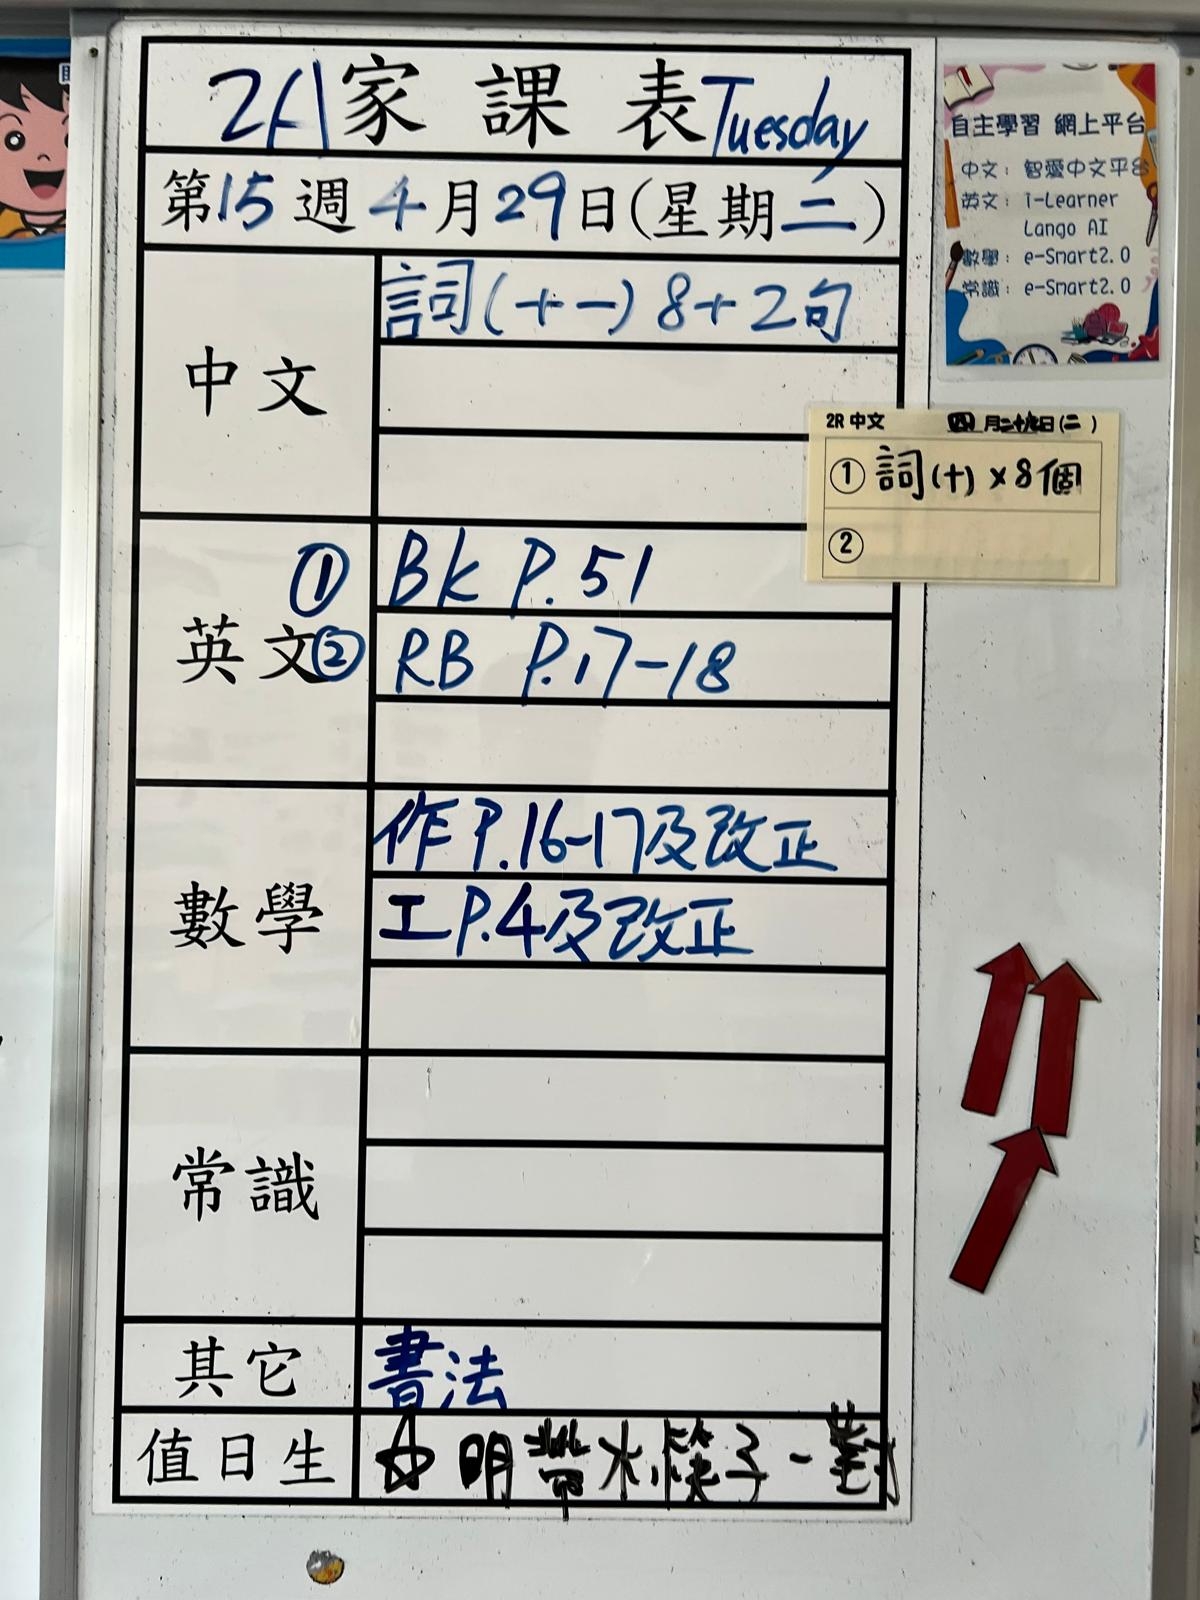 2A家課表Tuesday
第15週4月29日(星期二)
中文
詞(十一) 8+2句
英文
① Bk P.51
② RB P.17-18
數學
作P.16-17及改正
工P.4及改正
常識
其它
書法
值日生
☆明帶水,筷子一對
自主學習 網上平台
中文: 智愛中文平台
英文: i-Learner
Lango AI
數學: e-Smart2.0
常識: e-Smart2.0
2R 中文 四月二十九日(二)
① 詞(十)×8個
②